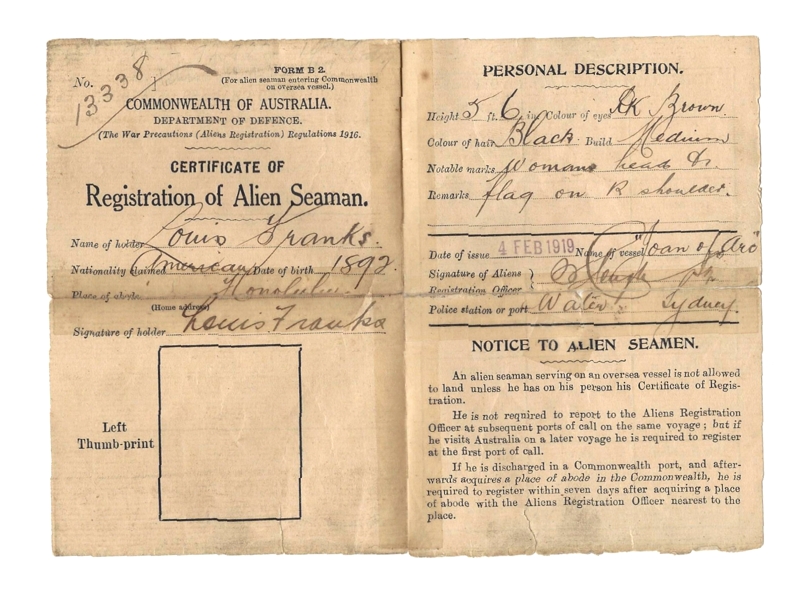 No. 13338
FORM B 2.
(For alien seaman entering Commonwealth
on oversea vessel.)
COMMONWEALTH OF AUSTRALIA.
DEPARTMENT OF DEFENCE.
(The War Precautions (Aliens Registration) Regulations 1916.
CERTIFICATE OF
Registration of Alien Seaman.
Name of holder Louis Franks.
Nationality claimed American Date of birth 1892.
Place of abode Honolulu.
(Home address)
Signature of holder Louis Franks
Left
Thumb-print
PERSONAL DESCRIPTION.
Height 5 ft. 6 in. Colour of eyes DK Brown.
Colour of hair Black Build Medium
Notable marks Womans head &
Remarks flag on R shoulder.
Date of issue 4 FEB 1919 Name of vessel "Joan of Arc"
Signature of Aliens
Registration Officer
Police station or port Water Sydney.
NOTICE TO ALIEN SEAMEN.
An alien seaman serving on an oversea vessel is not allowed
to land unless he has on his person his Certificate of Regis-
tration.
He is not required to report to the Aliens Registration
Officer at subsequent ports of call on the same voyage; but if
he visits Australia on a later voyage he is required to register
at the first port of call.
If he is discharged in a Commonwealth port, and after-
wards acquires a place of abode in the Commonwealth, he is
required to register within seven days after acquiring a place
of abode with the Aliens Registration Officer nearest to the
place.